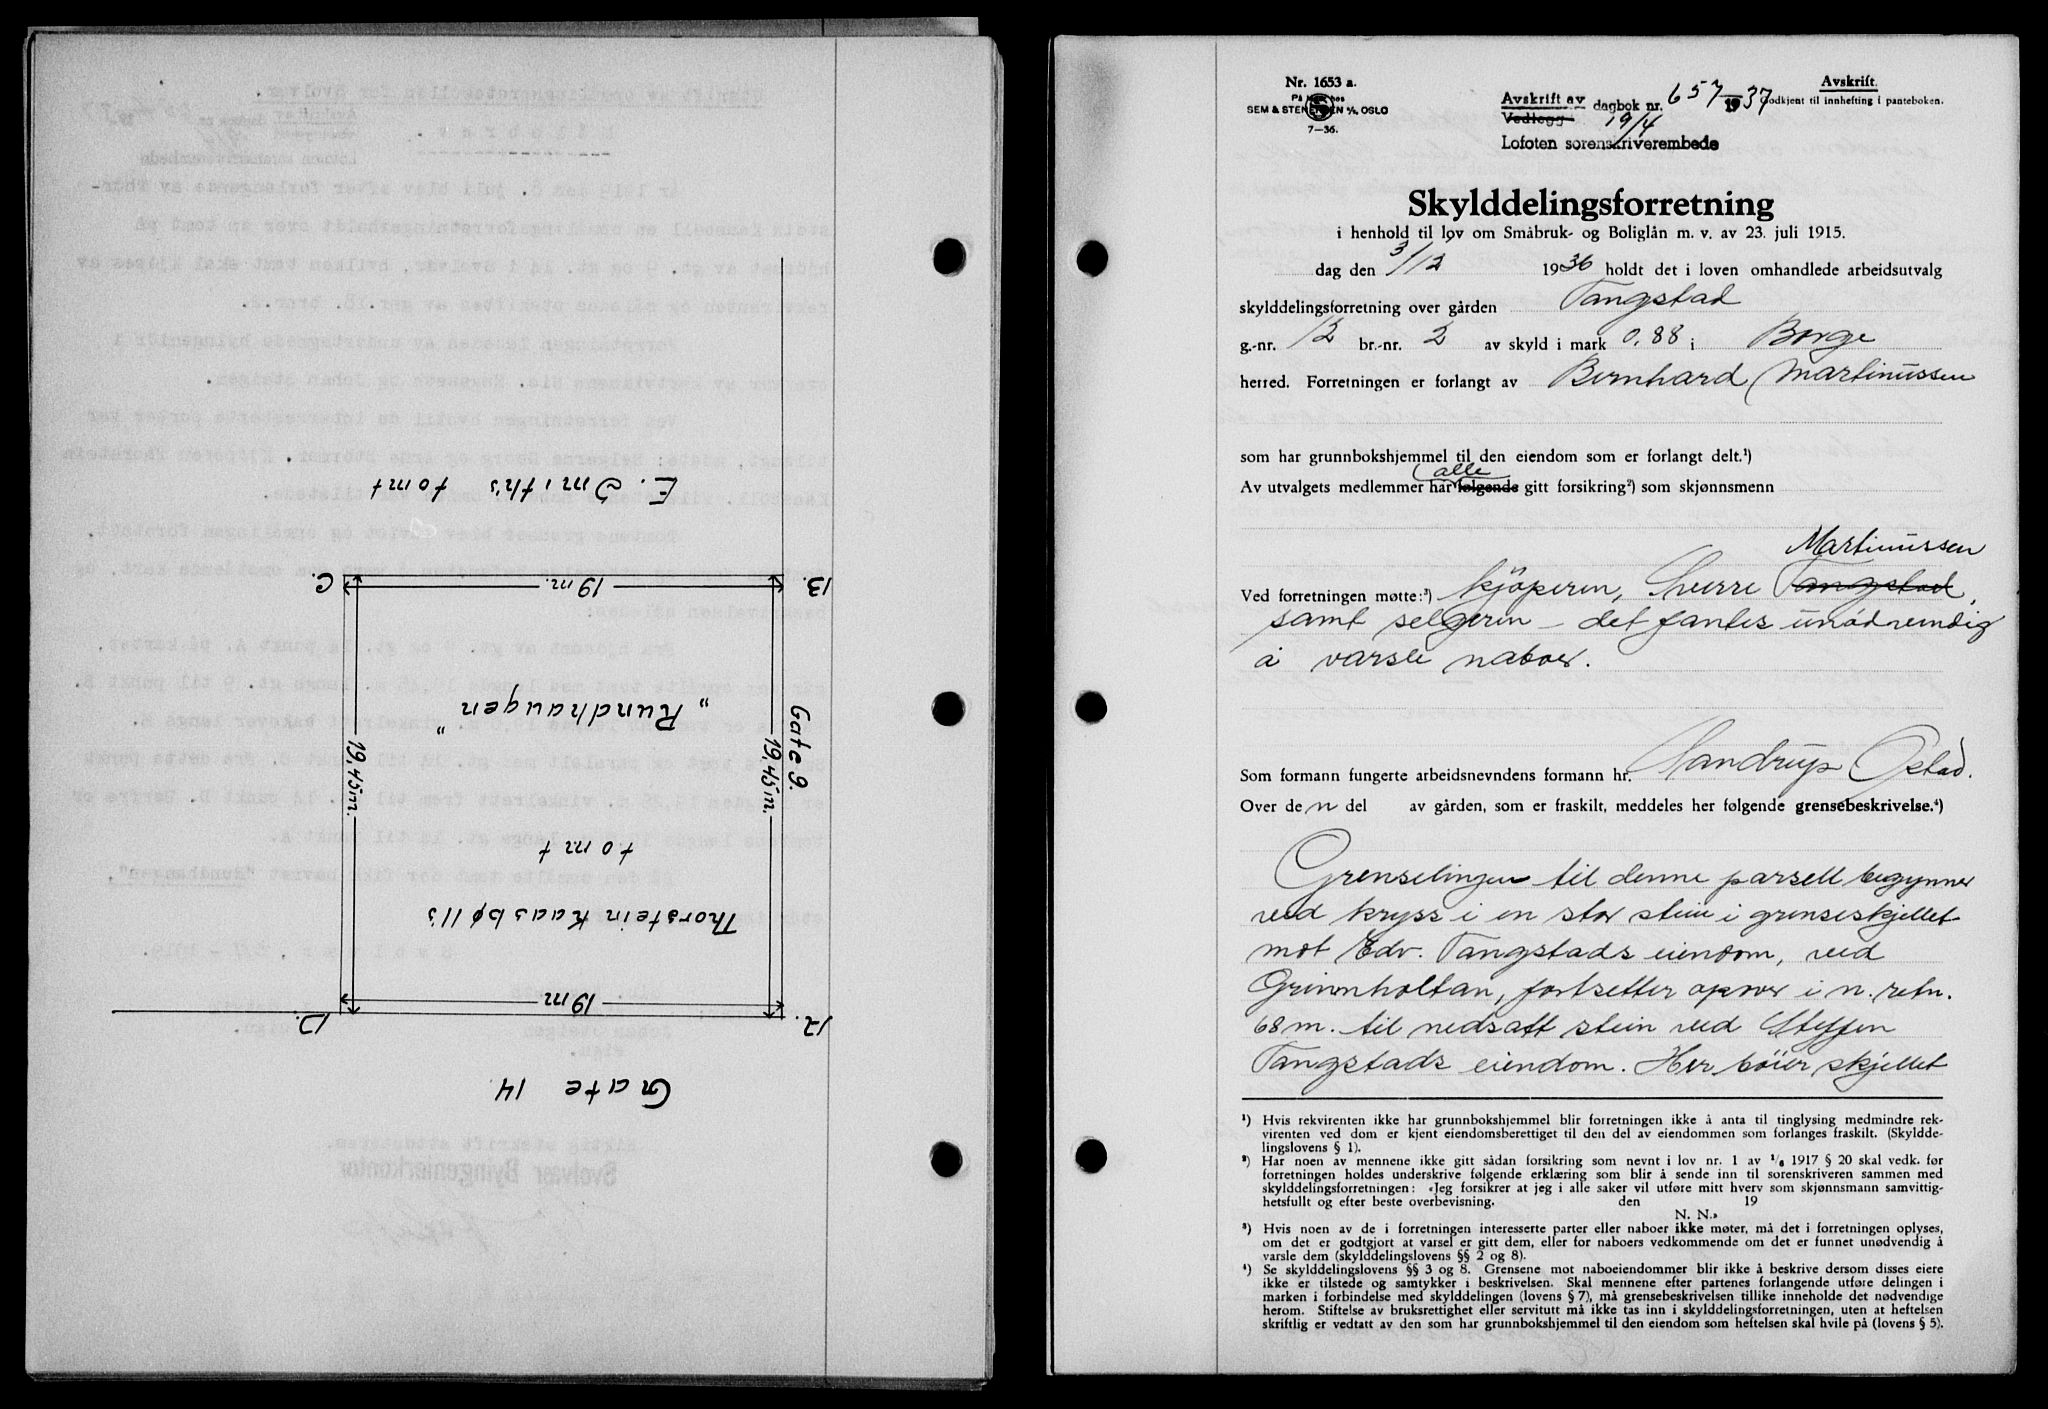 E. Smith's tomt
C.
19 m.
B.
Gate 9.
19,45 m.
19,45 m.
„Rundhaugen"
tomt
Thorstein Kaasbøll's
D.
19 m
A.
Gate 14
Nr. 1653 a.
SEM & STENERSEN A/S, OSLO
7—36.
Avskrift av dagbok nr. 657 1937
Vedlegg 19/4
Lofoten sorenskriverembede
Avskrift.
Godkjent til innhefting i panteboken.
Skylddelingsforretning
i henhold til lov om Småbruk- og Boliglån m. v. av 23. juli 1915.
dag den 3/12 1936 holdt det i loven omhandlede arbeidsutvalg
skylddelingsforretning over gården Tangstad
g.-nr. 12 br.-nr. 2 av skyld i mark 0,88 i Borge
herred. Forretningen er forlangt av Bernhard Martinussen
som har grunnbokshjemmel til den eiendom som er forlangt delt.¹)
alle
Av utvalgets medlemmer har følgende gitt forsikring²) som skjønnsmenn
Martinussen
Ved forretningen møtte:³) kjöperen, Sverre Tangstad,
samt selgeren – det fantes unödvendig
å varsle naboer.
Som formann fungerte arbeidsnevndens formann hr. Handrup Opstad.
Over de n del av gården, som er fraskilt, meddeles her følgende grensebeskrivelse.⁴)
Grenselinjen til denne parsell begynner
ved kryss i en stor stein i grenseskjellet
mot Edv. Tangstads eiendom, ved
Grinnholtan, fortsetter opover i n. retn.
68 m. til nedsatt stein ved Steffen
Tangstads eiendom. Her böier skjellet
¹) Hvis rekvirenten ikke har grunnbokshjemmel blir forretningen ikke å anta til tinglysing medmindre rek-
virenten ved dom er kjent eiendomsberettiget til den del av eiendommen som forlanges fraskilt. (Skyldde-
lingslovens § 1).
²) Har noen av mennene ikke gitt sådan forsikring som nevnt i lov nr. 1 av 1/6 1917 § 20 skal vedk. før
forretningen holdes underskrive følgende erklæring som blir å sende inn til sorenskriveren sammen med
skylddelingsforretningen: «Jeg forsikrer at jeg i alle saker vil utføre mitt hverv som skjønnsmann samvittig-
hetsfullt og efter beste overbevisning. den 19
N. N.»
³) Hvis noen av de i forretningen interesserte parter eller naboer ikke møter, må det i forretningen oplyses,
om det er godtgjort at varsel er gitt dem, eller for naboers vedkommende om det er funnet unødvendig å
varsle dem (skylddelingslovens §§ 2 og 8).
⁴) Se skylddelingslovens §§ 3 og 8. Grensene mot naboeiendommer blir ikke å beskrive dersom disses eiere
ikke er tilstede og samtykker i beskrivelsen. Skal mennene efter partenes forlangende utføre delingen i
marken i forbindelse med skylddelingen (lovens § 7), må grensebeskrivelsen tillike inneholde det nødvendige
herom. Stiftelse av bruksrettighet eller servitutt må ikke tas inn i skylddelingsforretningen, uten at heftelsen
skriftlig er vedtatt av den som har grunnbokshjemmel til den eiendom som heftelsen skal hvile på (lovens § 5).